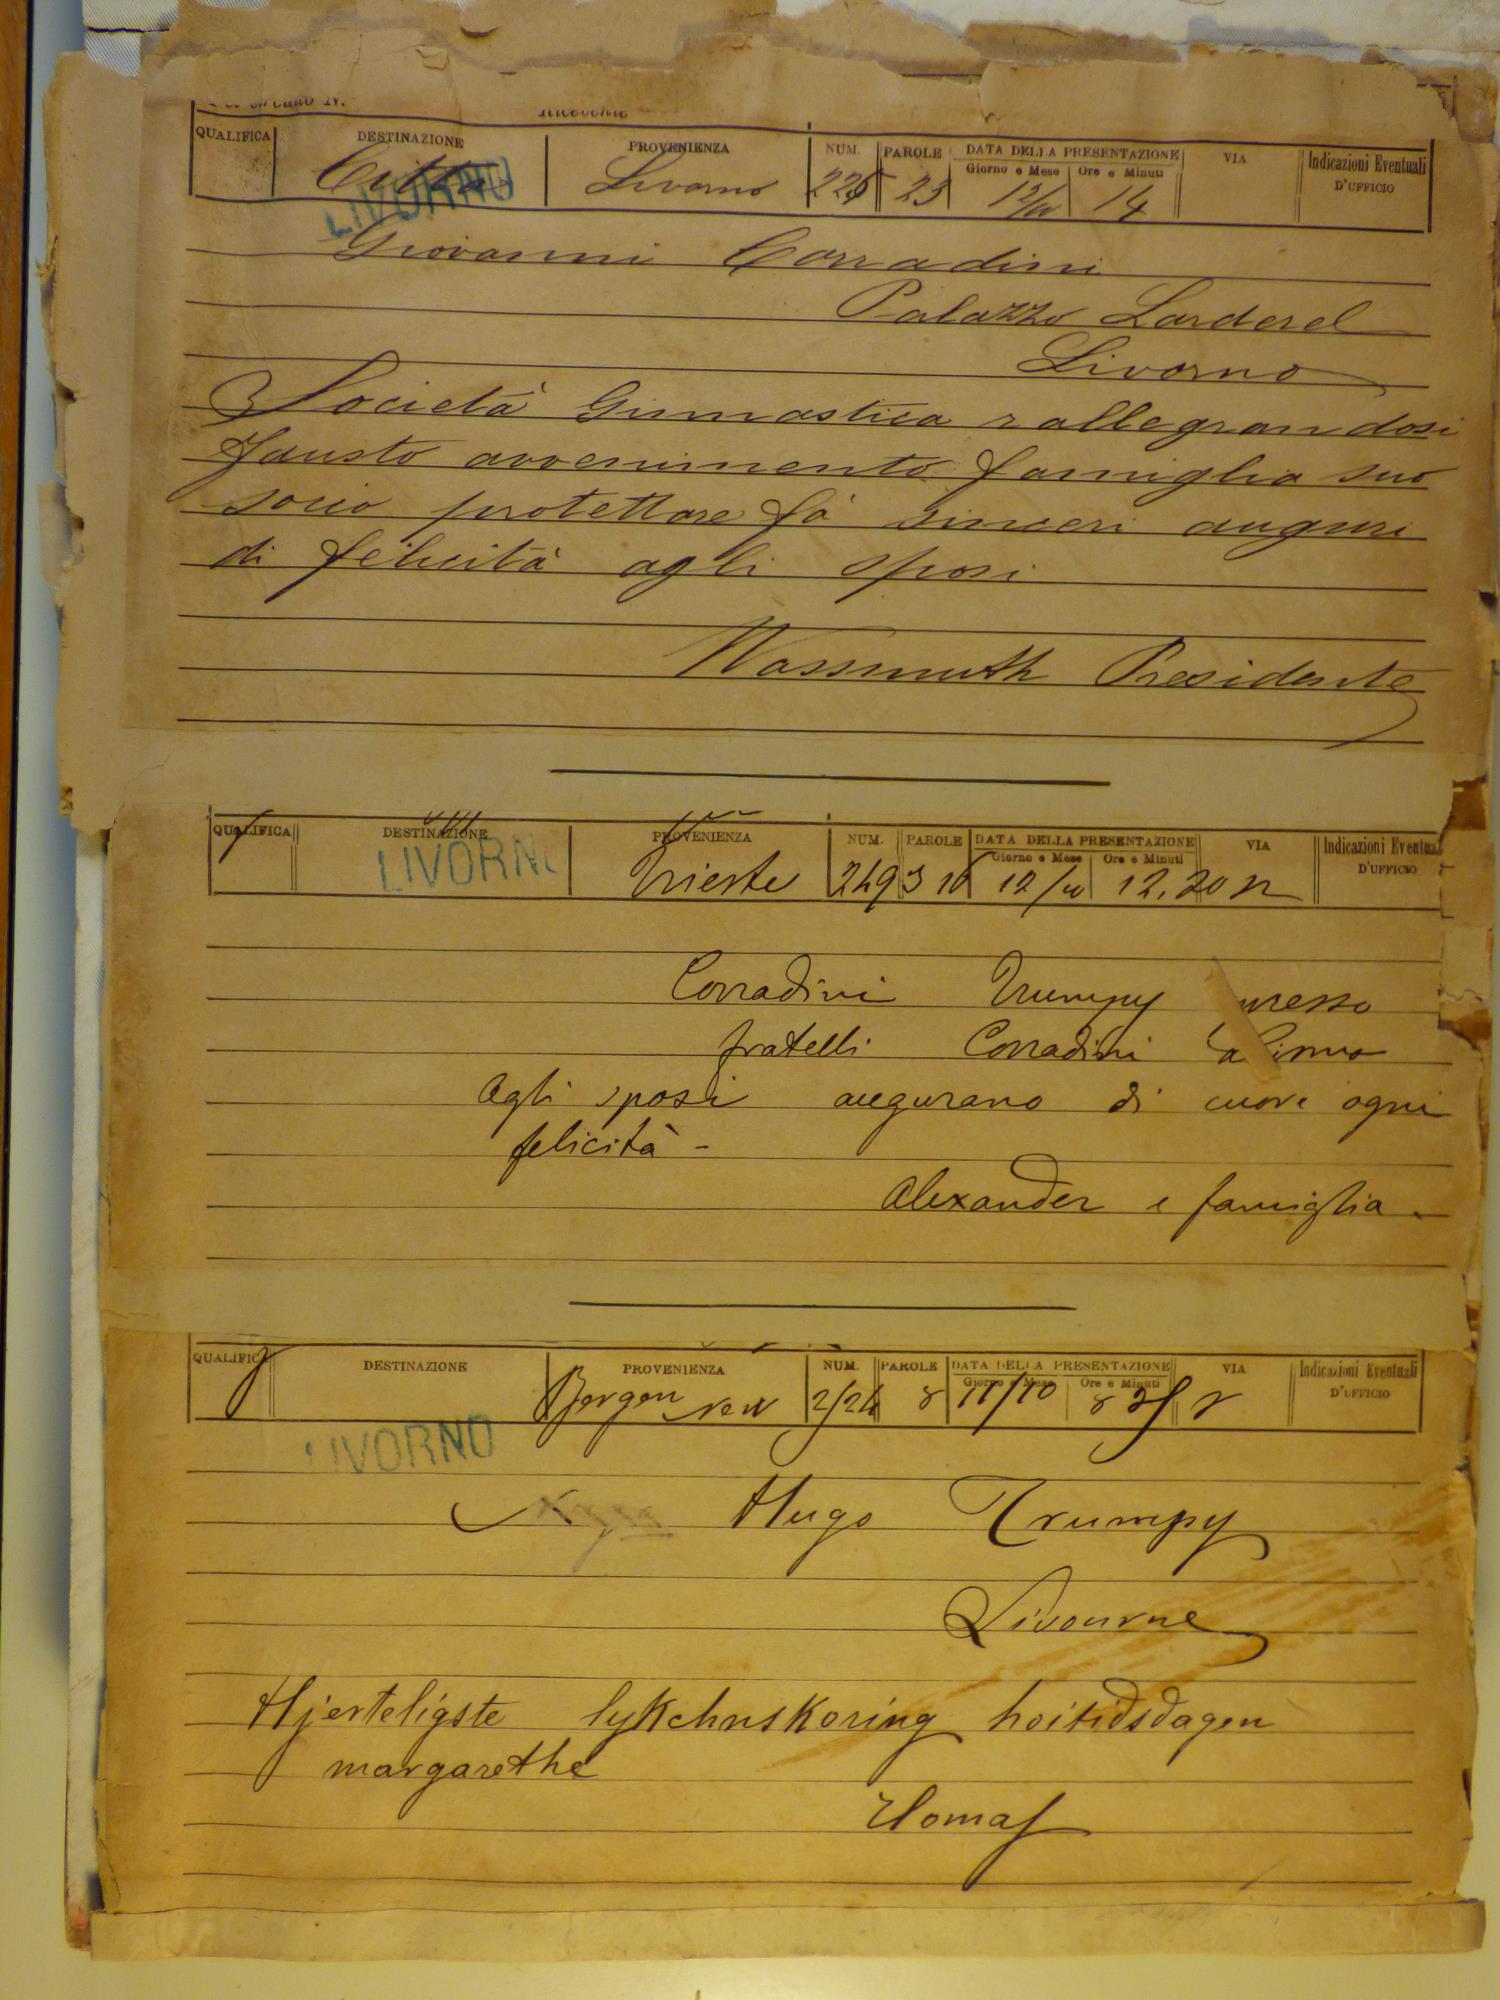 QUALIFICA DESTINAZIONE PROVENIENZA NUM. PAROLE DATA DELLA PRESENTAZIONE VIA Indicazioni Eventuali D'UFFICIO
Giorno e Mese Ore e Minuti
Città Livorno 225 23 12/10 14
LIVORNO
Giovanni Corradini
Palazzo Larderel
Livorno
Società Ginnastica rallegrandosi
fausto avvenimento famiglia suo
socio protettore fà sinceri auguri
di felicità agli sposi
Wassmuth Presidente
QUALIFICA DESTINAZIONE PROVENIENZA NUM. PAROLE DATA DELLA PRESENTAZIONE VIA Indicazioni Eventual
Giorno e Mese Ore e Minuti D'UFFICIO
LIVORNO Trieste 249 12/10 12,20
Corradini Trumpy presso
fratelli Corradini
Agli sposi augurano di cuore ogni
felicità -
Alexander e famiglia.
QUALIFICA DESTINAZIONE PROVENIENZA NUM. PAROLE DATA DELLA PRESENTAZIONE VIA Indicazioni Eventuali
Giorno e Mese Ore e Minuti D'UFFICIO
Bergen 8 11/10
LIVORNO
Hugo Trumpy
Livourne
Hjerteligste lykchnskoring hoitidsdagen
margarethe